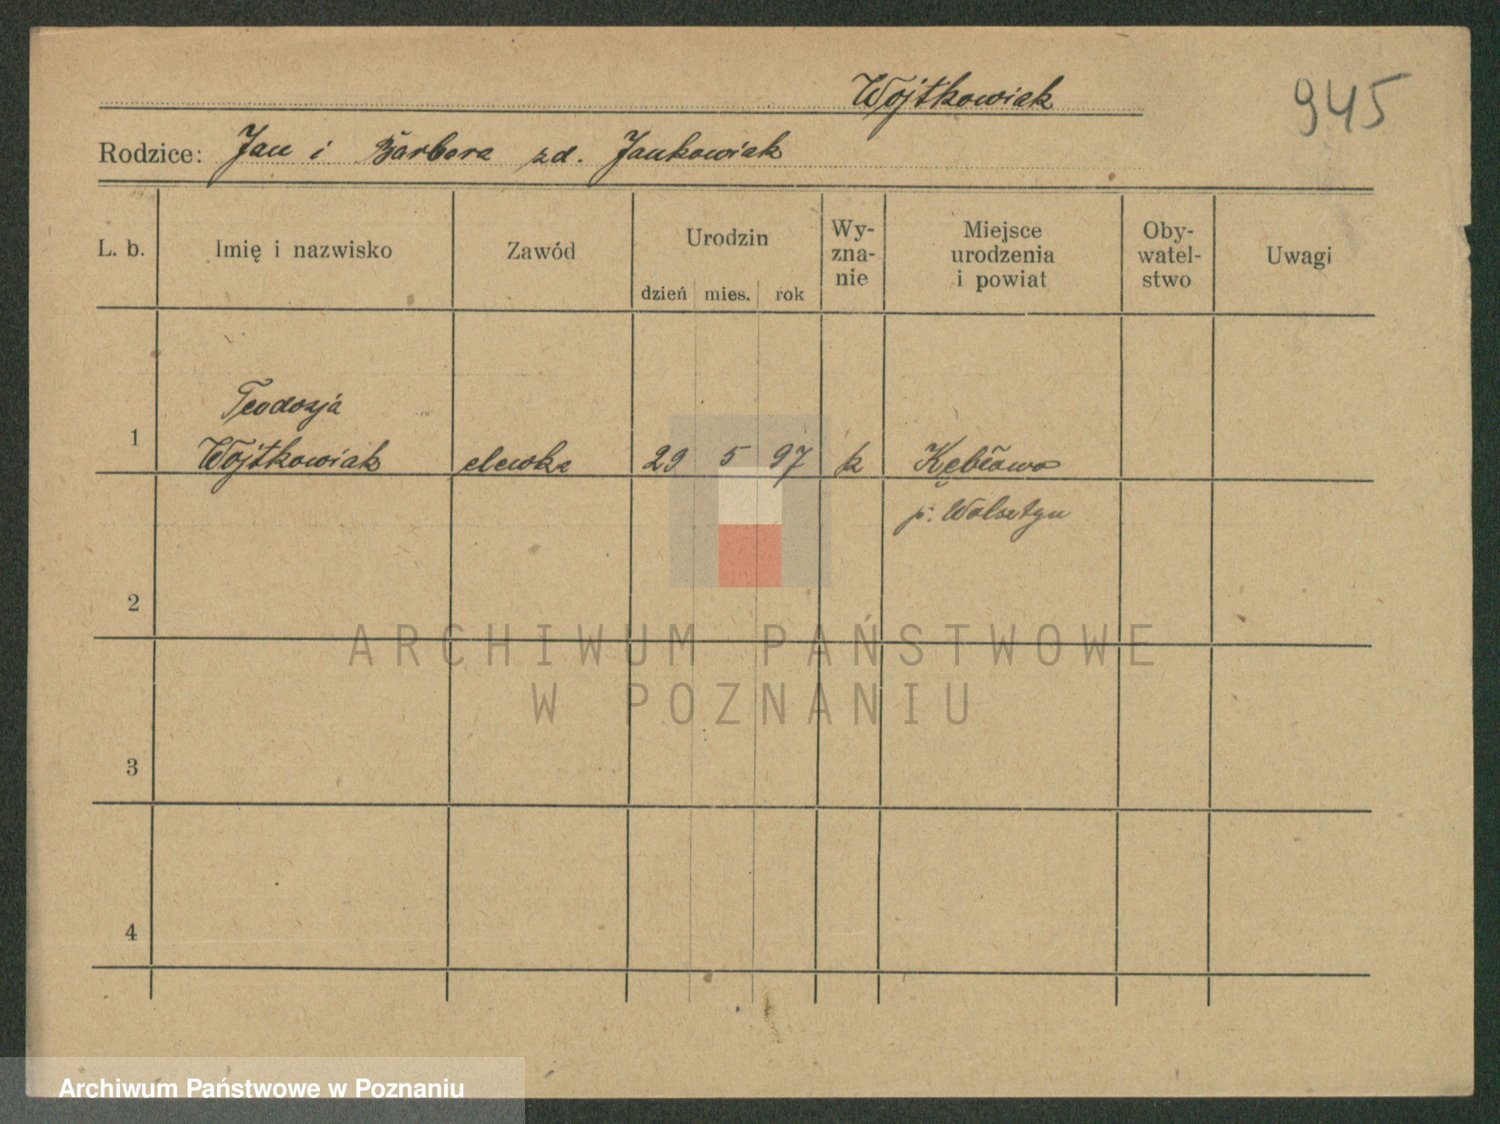 Wojtkowiak
945
Rodzice: Jan i Barbara zd. Jankowiak
L. b.
Imię i nazwisko
Zawód
Urodzin
dzień mies. rok
Wy-
zna-
nie
Miejsce
urodzenia
i powiat
Oby-
watel-
stwo
Uwagi
1
Teodozja
Wojtkowiak
elewka
29 5 97
k
Kębłowo
p. Wolsztyn
2
3
4
ARCHIWUM PAŃSTWOWE
W POZNANIU
Archiwum Państwowe w Poznaniu